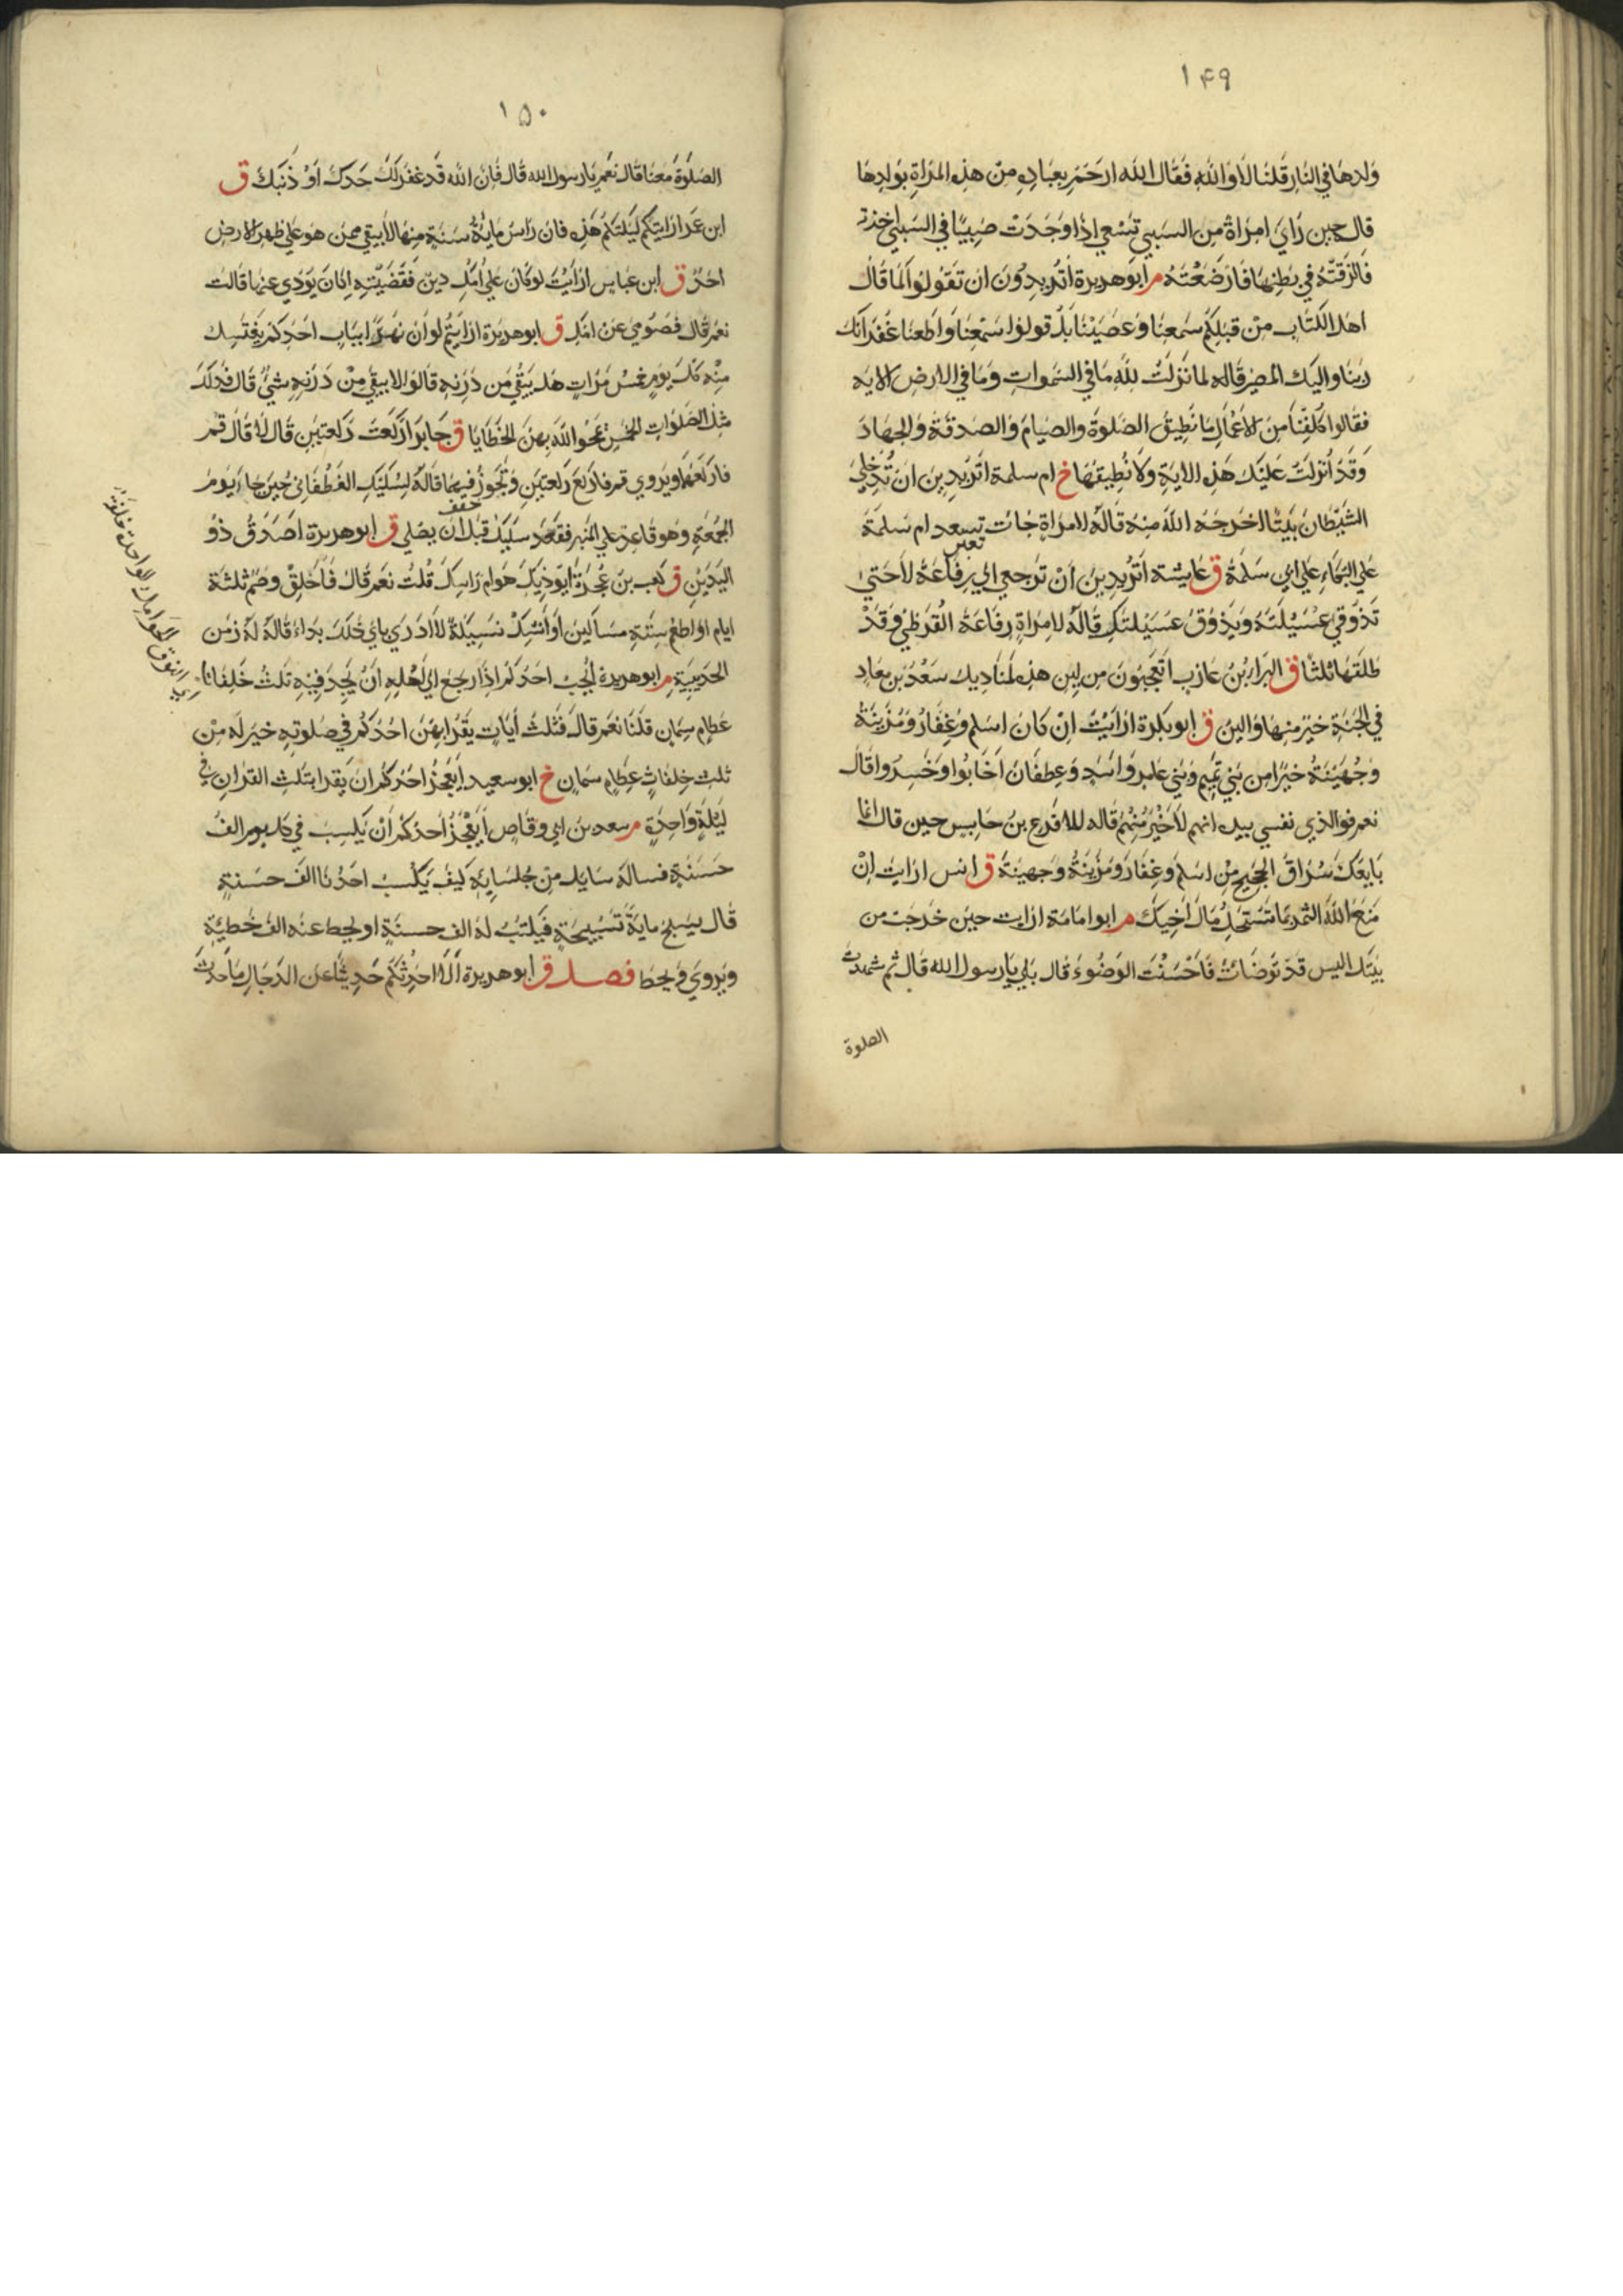 ١٤٩
ولدها في النار قلنا لا والله فقال الله ارحم بعباده من هذه المراة بولدها
قال حين راي امراة من السبي تسعي اذا وجدت صبيا في السبي اخذته
فالزقته في بطنها فارضعته م ابو هريرة اتريدون ان تقولوا كما قال
اهل الكتاب من قبلكم سمعنا وعصينا بل قولوا سمعنا واطعنا غفرانك
ربنا واليك المصير قاله لما نزلت لله ما في السموات وما في الارض الاية
فقالوا كلفنا من الاعمال ما نطيق الصلوة والصيام والصدقة والجهاد
وقد انزلت عليك هذه الاية ولا نطيقها خ ام سلمة اتريدين ان تدخلي
الشيطان بيتا اخرجه الله منه قاله لامراة جات تسعد ام سلمة
تعين
علي البكاء علي ابي سلمة ق عايشة اتريدين ان ترجعي الي رفاعة لا حتي
تذوقي عسيلته ويذوق عسيلتك قاله لامراة رفاعة القرظي وقد
طلقها ثلثا ق البراء بن عازب اتعجبون من لين هذه لمناديل سعد بن معاد
في الجنة خير منها والين ق ابو بكرة ارايت ان كان اسلم وغفار ومزينة
وجهينة خيرا من بني تميم وبني عامر واسد وغطفان اخابوا وخسروا قال
نعم فوالذي نفسي بيده انهم لاخير منهم قاله للاقرع بن حابس حين قال انما
بايعك سراق الحجيج من اسلم وغفار ومزينة وجهينة ق انس ارايت ان
منع الله الثمر بما تستحل مال اخيك م ابو امامة ارايت حين خرجت من
بيتك اليس قد توضات فاحسنت الوضوء قال بلي يا رسول الله قال ثم شهدت
الصلوة
١٥٠
الصلوة معنا قال نعم يا رسول الله قال فان الله قد غفر لك حدك او ذنبك ق
ابن عمر ارايتكم ليلتكم هذه فان راس ماية سنة منها لا يبقي ممن هو علي ظهر الارض
احد ق ابن عباس ارايت لو كان علي امك دين فقضيته اكان يودي عنها قالت
نعم قال فصومي عن امك ق ابو هريرة ارايتم لو ان نهرا بباب احدكم يغتسل
منه كل يوم خمس مرات هل يبقي من درنه قالوا لا يبقي من درنه شيء قال فذلك
مثل الصلوات الخمس يمحو الله بهن الخطايا ق جابر اركعت ركعتين قال لا قال قم
فاركعهما ويروي قم فاركع ركعتين وتجوز فيهما قاله لسليك الغطفاني حين جاء يوم
خفف
الجمعة وهو قاعد علي المنبر فقعد سليك قبل ان يصلي ق ابو هريرة اصدق ذو
اليدين ق كعب بن عجرة ايوذيك هوام راسك قلت نعم قال فاحلق وصم ثلثة
ايام او اطعم ستة مساكين او انسك نسيكة لا ادري باي ذلك بداء قاله له زمن
الحديبية م ابو هريرة ايحب احدكم اذا رجع الي اهله ان يجد فيه ثلث خلفات
اي النوق الحوامل الواحدة خلفة
عظام سمان قلنا نعم قال فثلث ايات يقرا بهن احدكم في صلوته خير له من
ثلث خلفات عظام سمان خ ابو سعيد ايعجز احدكم ان يقرا بثلث القران في
ليلة واحدة م سعد بن ابي وقاص ايعجز احدكم ان يكسب في كل يوم الف
حسنة فساله سايل من جلسايه كيف يكسب احدنا الف حسنة
قال يسبح ماية تسبيحة فيكتب له الف حسنة او يحط عنه الف خطيئة
ويروي ويحط فصل ق ابو هريرة الا احدثكم حديثا عن الدجال ما حدث